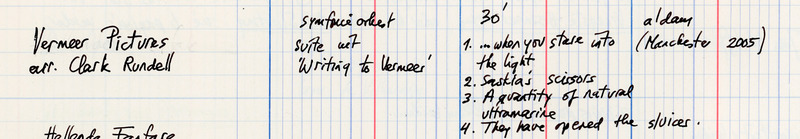 Vermeer Pictures
arr. Clark Rundell
symfonieorkest
suite uit
'Writing to Vermeer'
30'
1. ...when you stare into
the light
2. Saskia's scissors
3. A quantity of natural
ultramarine
4. They have opened the sluices.
a'dam
(Manchester 2005)
Hollands Fanfare